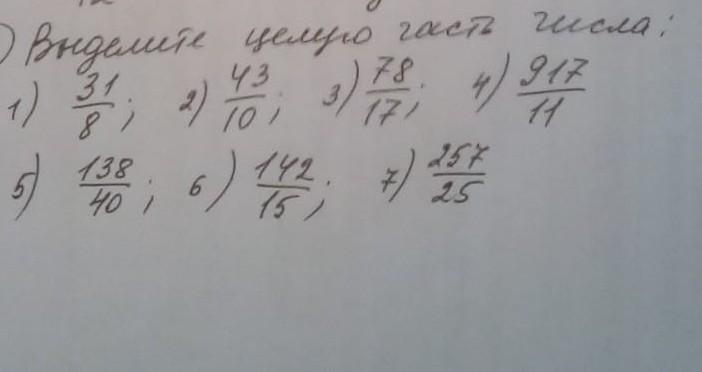 ) Выделите целую часть числа:
1) 31/8; 2) 43/10; 3) 78/17; 4) 917/11
5) 138/40; 6) 142/15; 7) 257/25